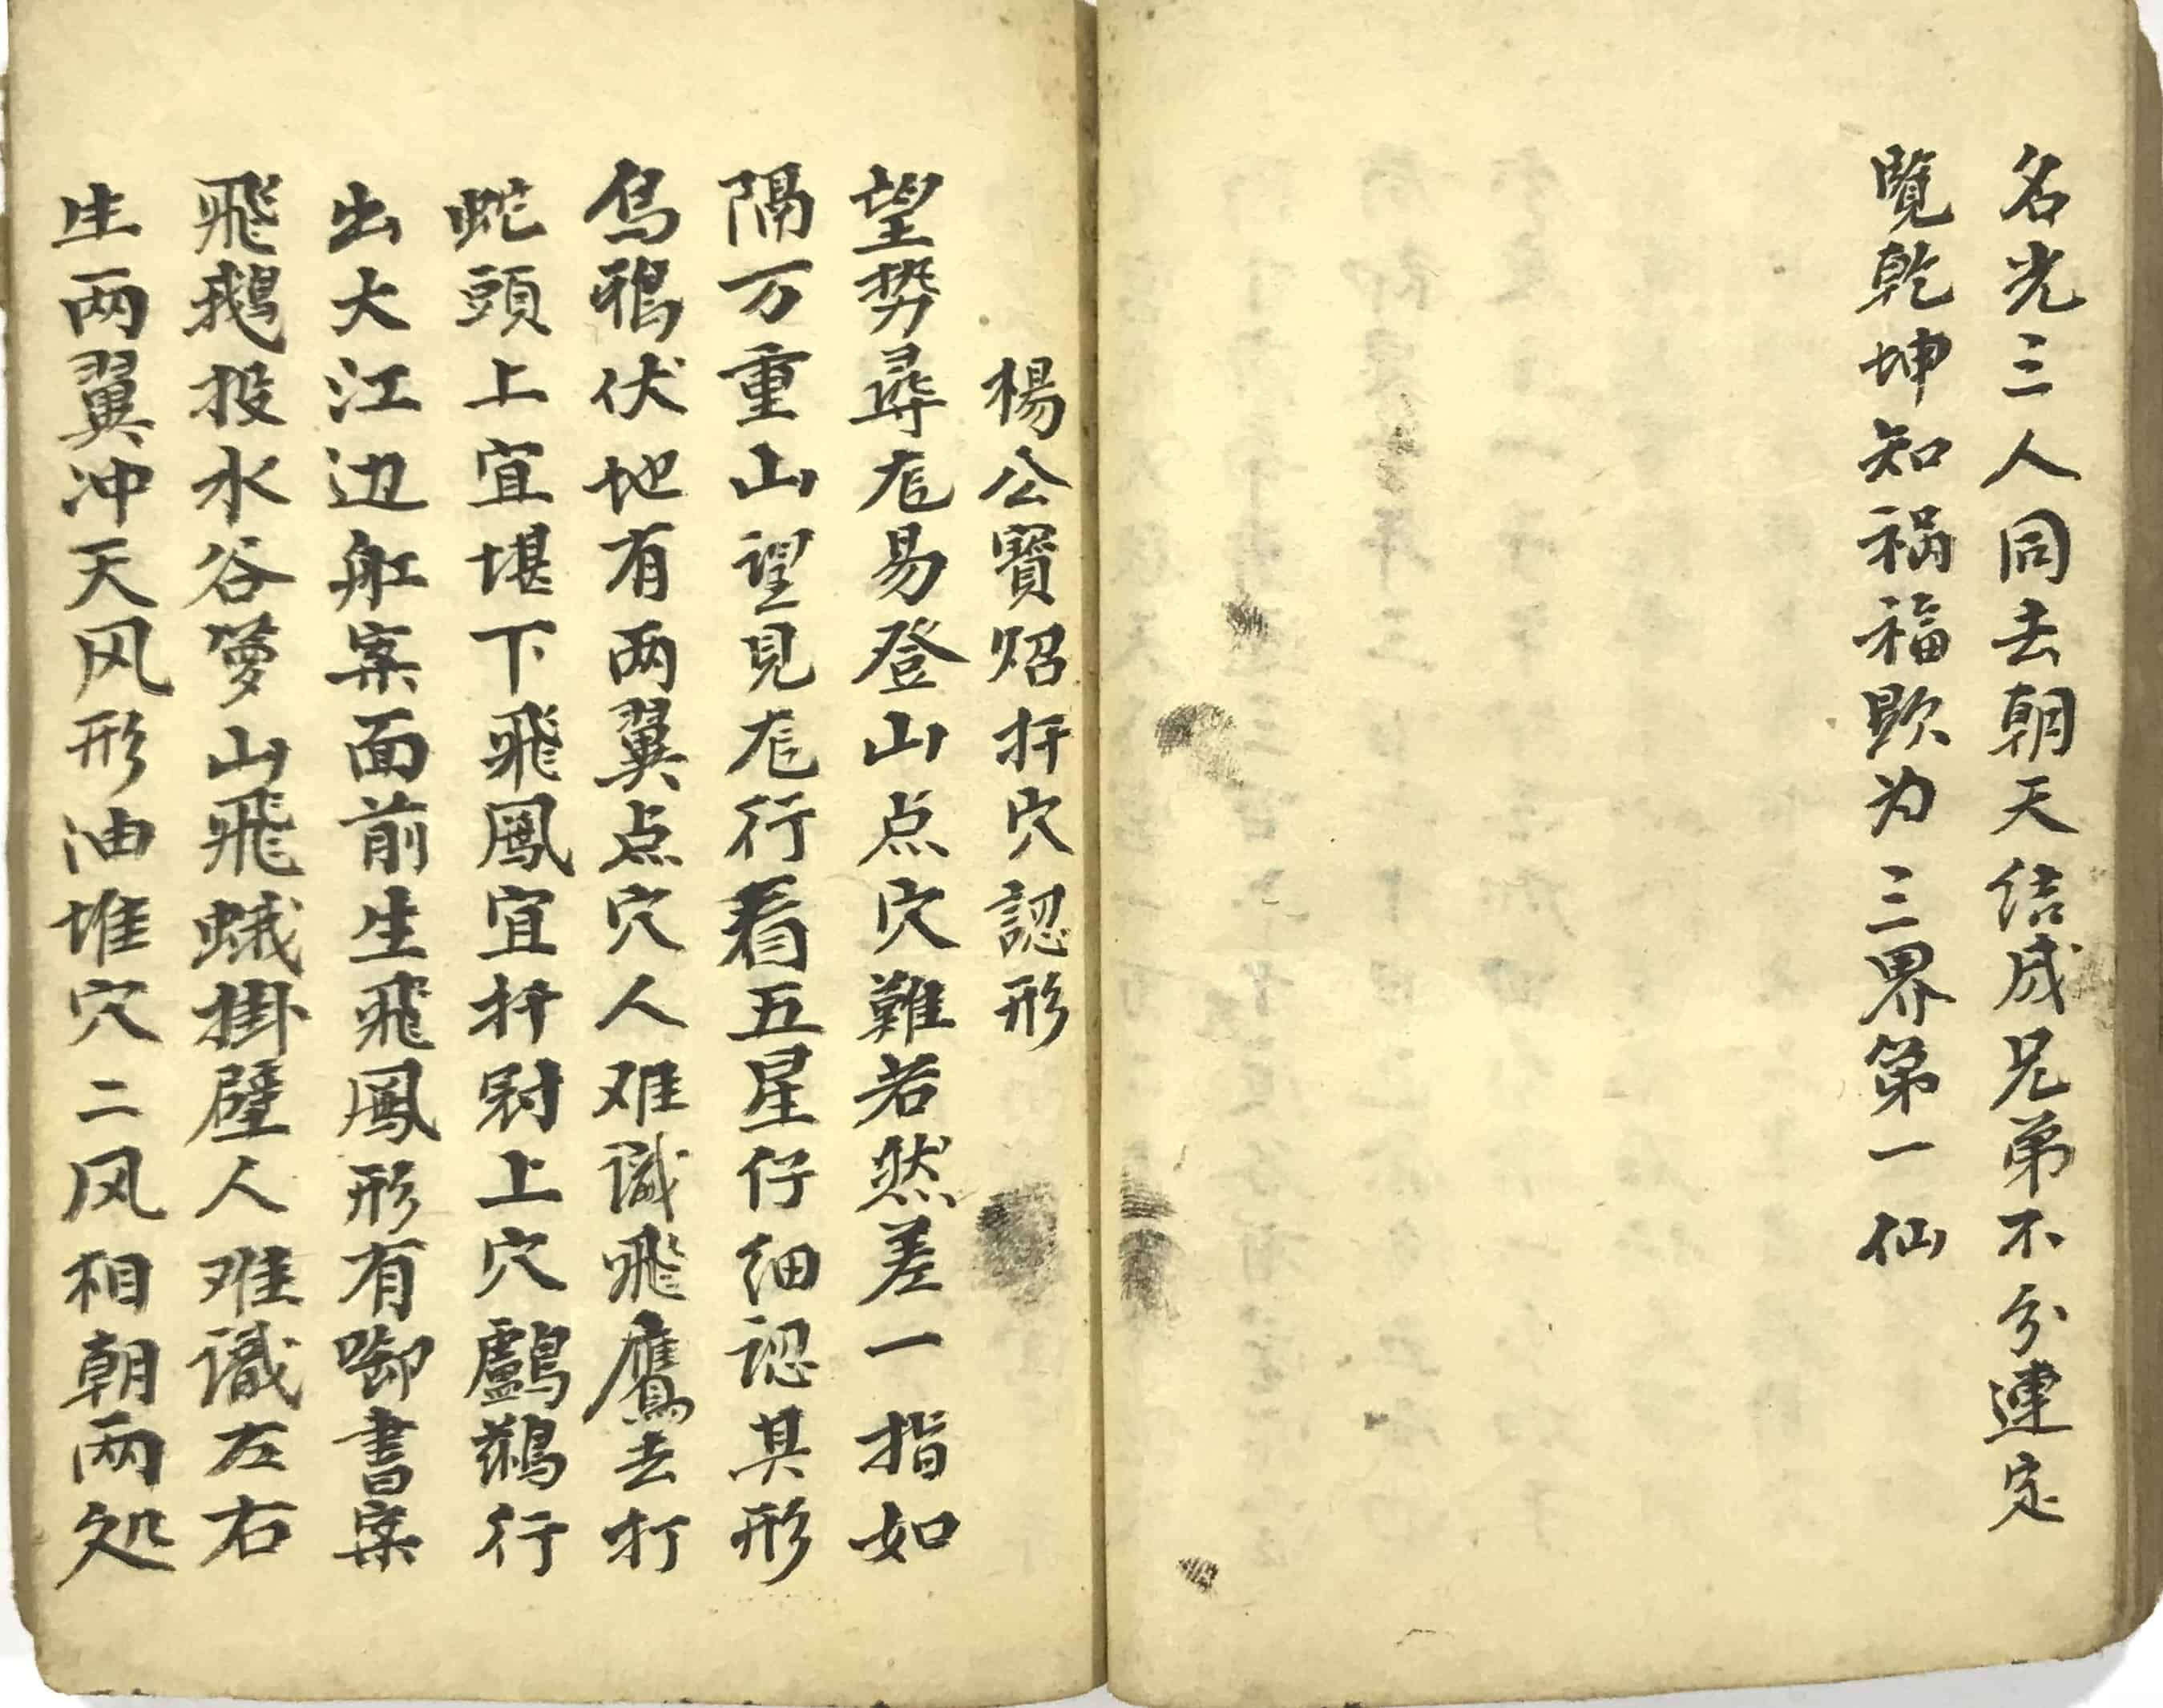 名光三人同去朝天结成兄弟不分連定
覽乾坤知祸福歟为三界第一仙
楊公寳炤扦穴認形
望势尋尨易登山点穴難若然差一指如
隔万重山望見尨行看五星仔细認其形
烏鴉伏地有两翼点穴人难識飛鷹去打
蛇頭上宜堪下飛鳳宜扦尉上穴鸕鷀行
出大江边舡案面前生飛鳳形有啣書案
飛鵝投水谷箩山飛蛾掛壁人难識左右
生两翼冲天风形油堆穴二风相朝两处